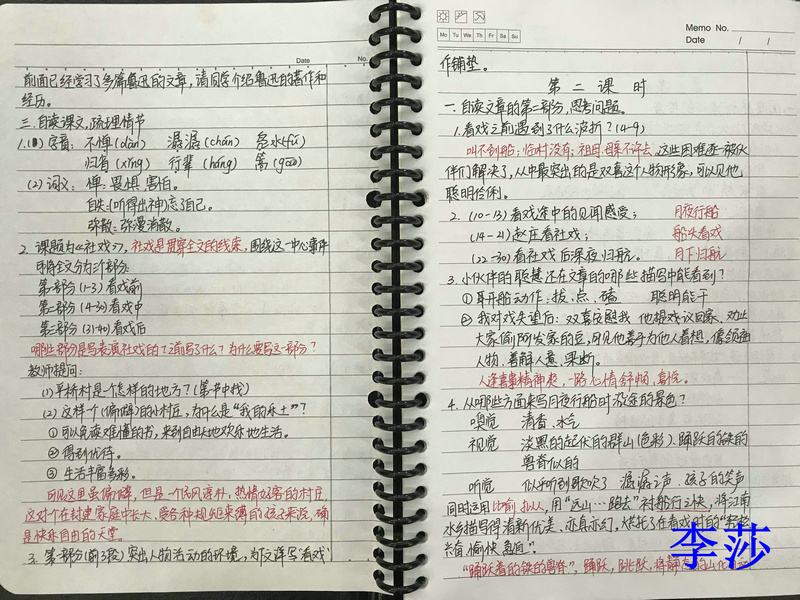 Date No.
前面已经学习了多篇鲁迅的文章,请同学介绍鲁迅的著作和
经历。
三.自读课文,疏理情节
1.(1)字音: 不惮(dàn) 潺潺(chán) 凫水(fú)
归省(xǐng) 行辈(háng) 篙(gāo)
(2)词义: 惮:畏惧 害怕。
自失:(听得出神)忘了自己。
弥散:弥漫消散。
2. 课题为《社戏》,社戏是贯穿全文的线索,围绕这一中心事件
可将全文分为三个部分:
第一部分(1-3)看戏前
第二部分(4-30)看戏中
第三部分(31-40)看戏后
哪些部分是写表演社戏的?之前写了什么?为什么要写这一部分?
教师提问:
(1)平桥村是个怎样的地方?(第1书中找)
(2)这样个(偏僻)的小村庄,为什么是“我的乐土”?
①可以免读难懂的书,来到自由天地欢乐地生活。
②得到优待。
③生活丰富多彩。
可见这里虽偏僻,但是一个民风淳朴,热情好客的村庄,
这对个在封建家庭中长大、受各种规矩束缚的孩子来说,确
是快乐自由的天堂。
3. 第一部分(前3段)突出人物活动的环境,为下文详写看戏
Mo Tu We Th Fr Sa Su
Memo No.
Date / /
作铺垫。
第二课时
一.自读文章的第二部分,思考问题。
1.看戏之前遇到了什么波折?(4-9)
叫不到船;临村没有;祖母、母亲不许去。这些困难逐一被伙
伴们解决了,从中最突出的是双喜这个人物形象,可以见他
聪明伶俐。
2. (10-13)看戏途中的见闻感受; 月夜行船
(14-21)赵庄看社戏; 船头看戏
(22-30)看社戏后深夜归航。 月下归航
3.小伙伴的聪慧还在文章的哪些描写中能看到?
①开船动作:拔、点、磕 聪明能干
大家偷阿发家的豆,可见他善于为他人着想,
人物,善解人意,果断。
4. 从哪些方面来写月夜行船时沿途的景色?
嗅觉 清香、水气
视觉 淡黑的起伏的群山(色彩)、踊跃的铁的
兽脊似的
听觉 似乎听到歌吹了 潺潺之声、孩子的笑声
同时运用比喻 拟人,用“远山…跑去”衬船行之快,将江南
水乡描写得清新优美、亦真亦幻,烘托了在看戏时的
“踊跃着的铁的兽脊”,踊跃,跳跃,将静
李莎